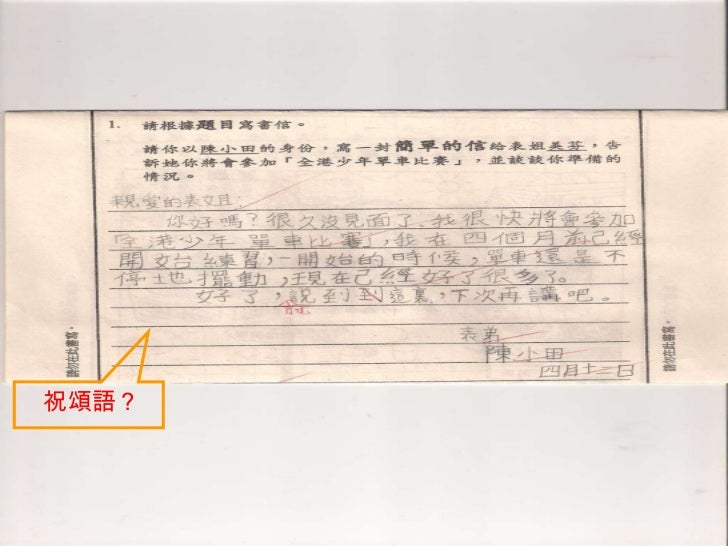 1. 請根據題目寫書信。
請你以陳小田的身份，寫一封簡單的信給表姐美芬，告
訴她你將會參加「全港少年單車比賽」，並談談你準備的
情況。
親愛的表姐：
你好嗎？很久沒見面了，我很快將會參加
全港少年單車比賽，我在四個月前已經
開始練習，一開始的時候，單車還是不
停地擺動，現在已經好了很多了。
好了，說到到這裏，下次再講吧。
表弟
陳小田
四月十二日
請勿在此書寫。
請勿在此書寫。
祝頌語？